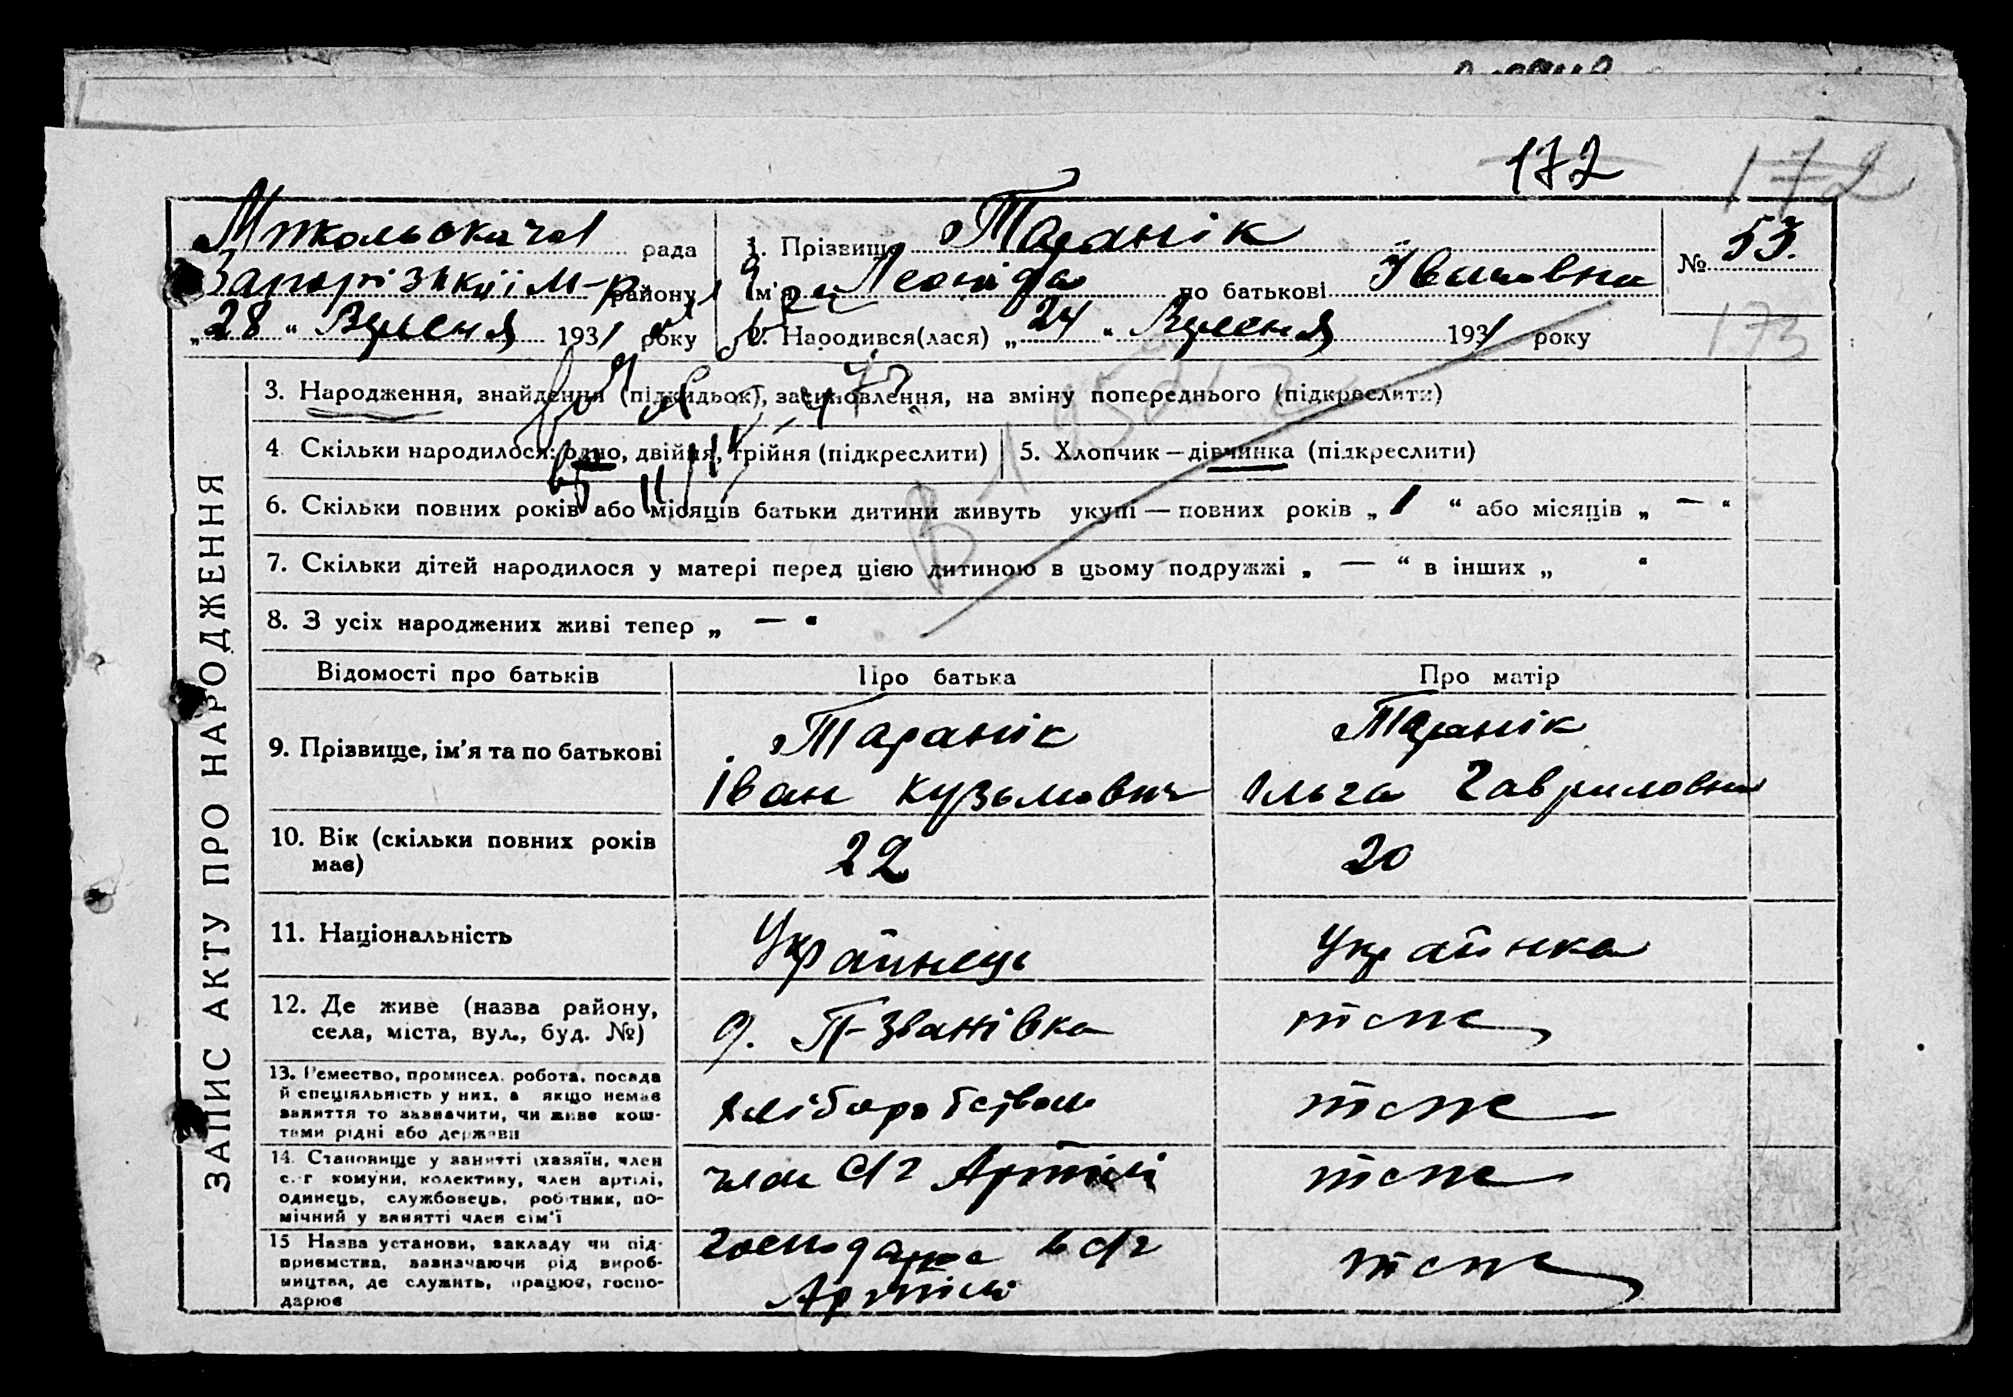 172
172
рада
1. Прізвище Таранік
№ 53.
Запорізький м-р. району
Ім'я Леоніда по батькові Івановна
„28“ Вресня 1931 року
2. Народився(лася) „24“ Вресня 1931 року
173
3. Народження, знайдення (підкидьок), засиновлення, на зміну попереднього (підкреслити)
4. Скільки народилося: одно, двійня, трійня (підкреслити)
5. Хлопчик — дівчинка (підкреслити)
6. Скільки повних років або місяців батьки дитини живуть укупі — повних років „ 1 “ або місяців „ — “
7. Скільки дітей народилося у матері перед цією дитиною в цьому подружжі „ — “ в інших „ “
8. З усіх народжених живі тепер „ — “
ЗАПИС АКТУ ПРО НАРОДЖЕННЯ
Відомості про батьків
Про батька
Про матір
9. Прізвище, ім'я та по батькові
Таранік
Іван Кузьмович
Таранік
Ольга Гавриловна
10. Вік (скільки повних років
має)
22
20
11. Національність
Українець
Українка
12. Де живе (назва району,
села, міста, вул., буд. №)
П-Званівка
теж
13. Ремество, промисел, робота, посада
й спеціяльність у них, а якщо немає
заняття то зазначити, чи живе кош-
тами рідні або держави
хліборобством
теж
14. Становище у занятті (хазяїн, член
с.-г комуни, колективу, член артілі,
одинець, службовець, робітник, по-
мічний у занятті член сім'ї
член С/г Артілі
теж
15 Назва установи, закладу чи під-
приємства, зазначаючи рід вироб-
ництва, де служить, працює, госпо-
дарює
в с/г
Артілі
теж